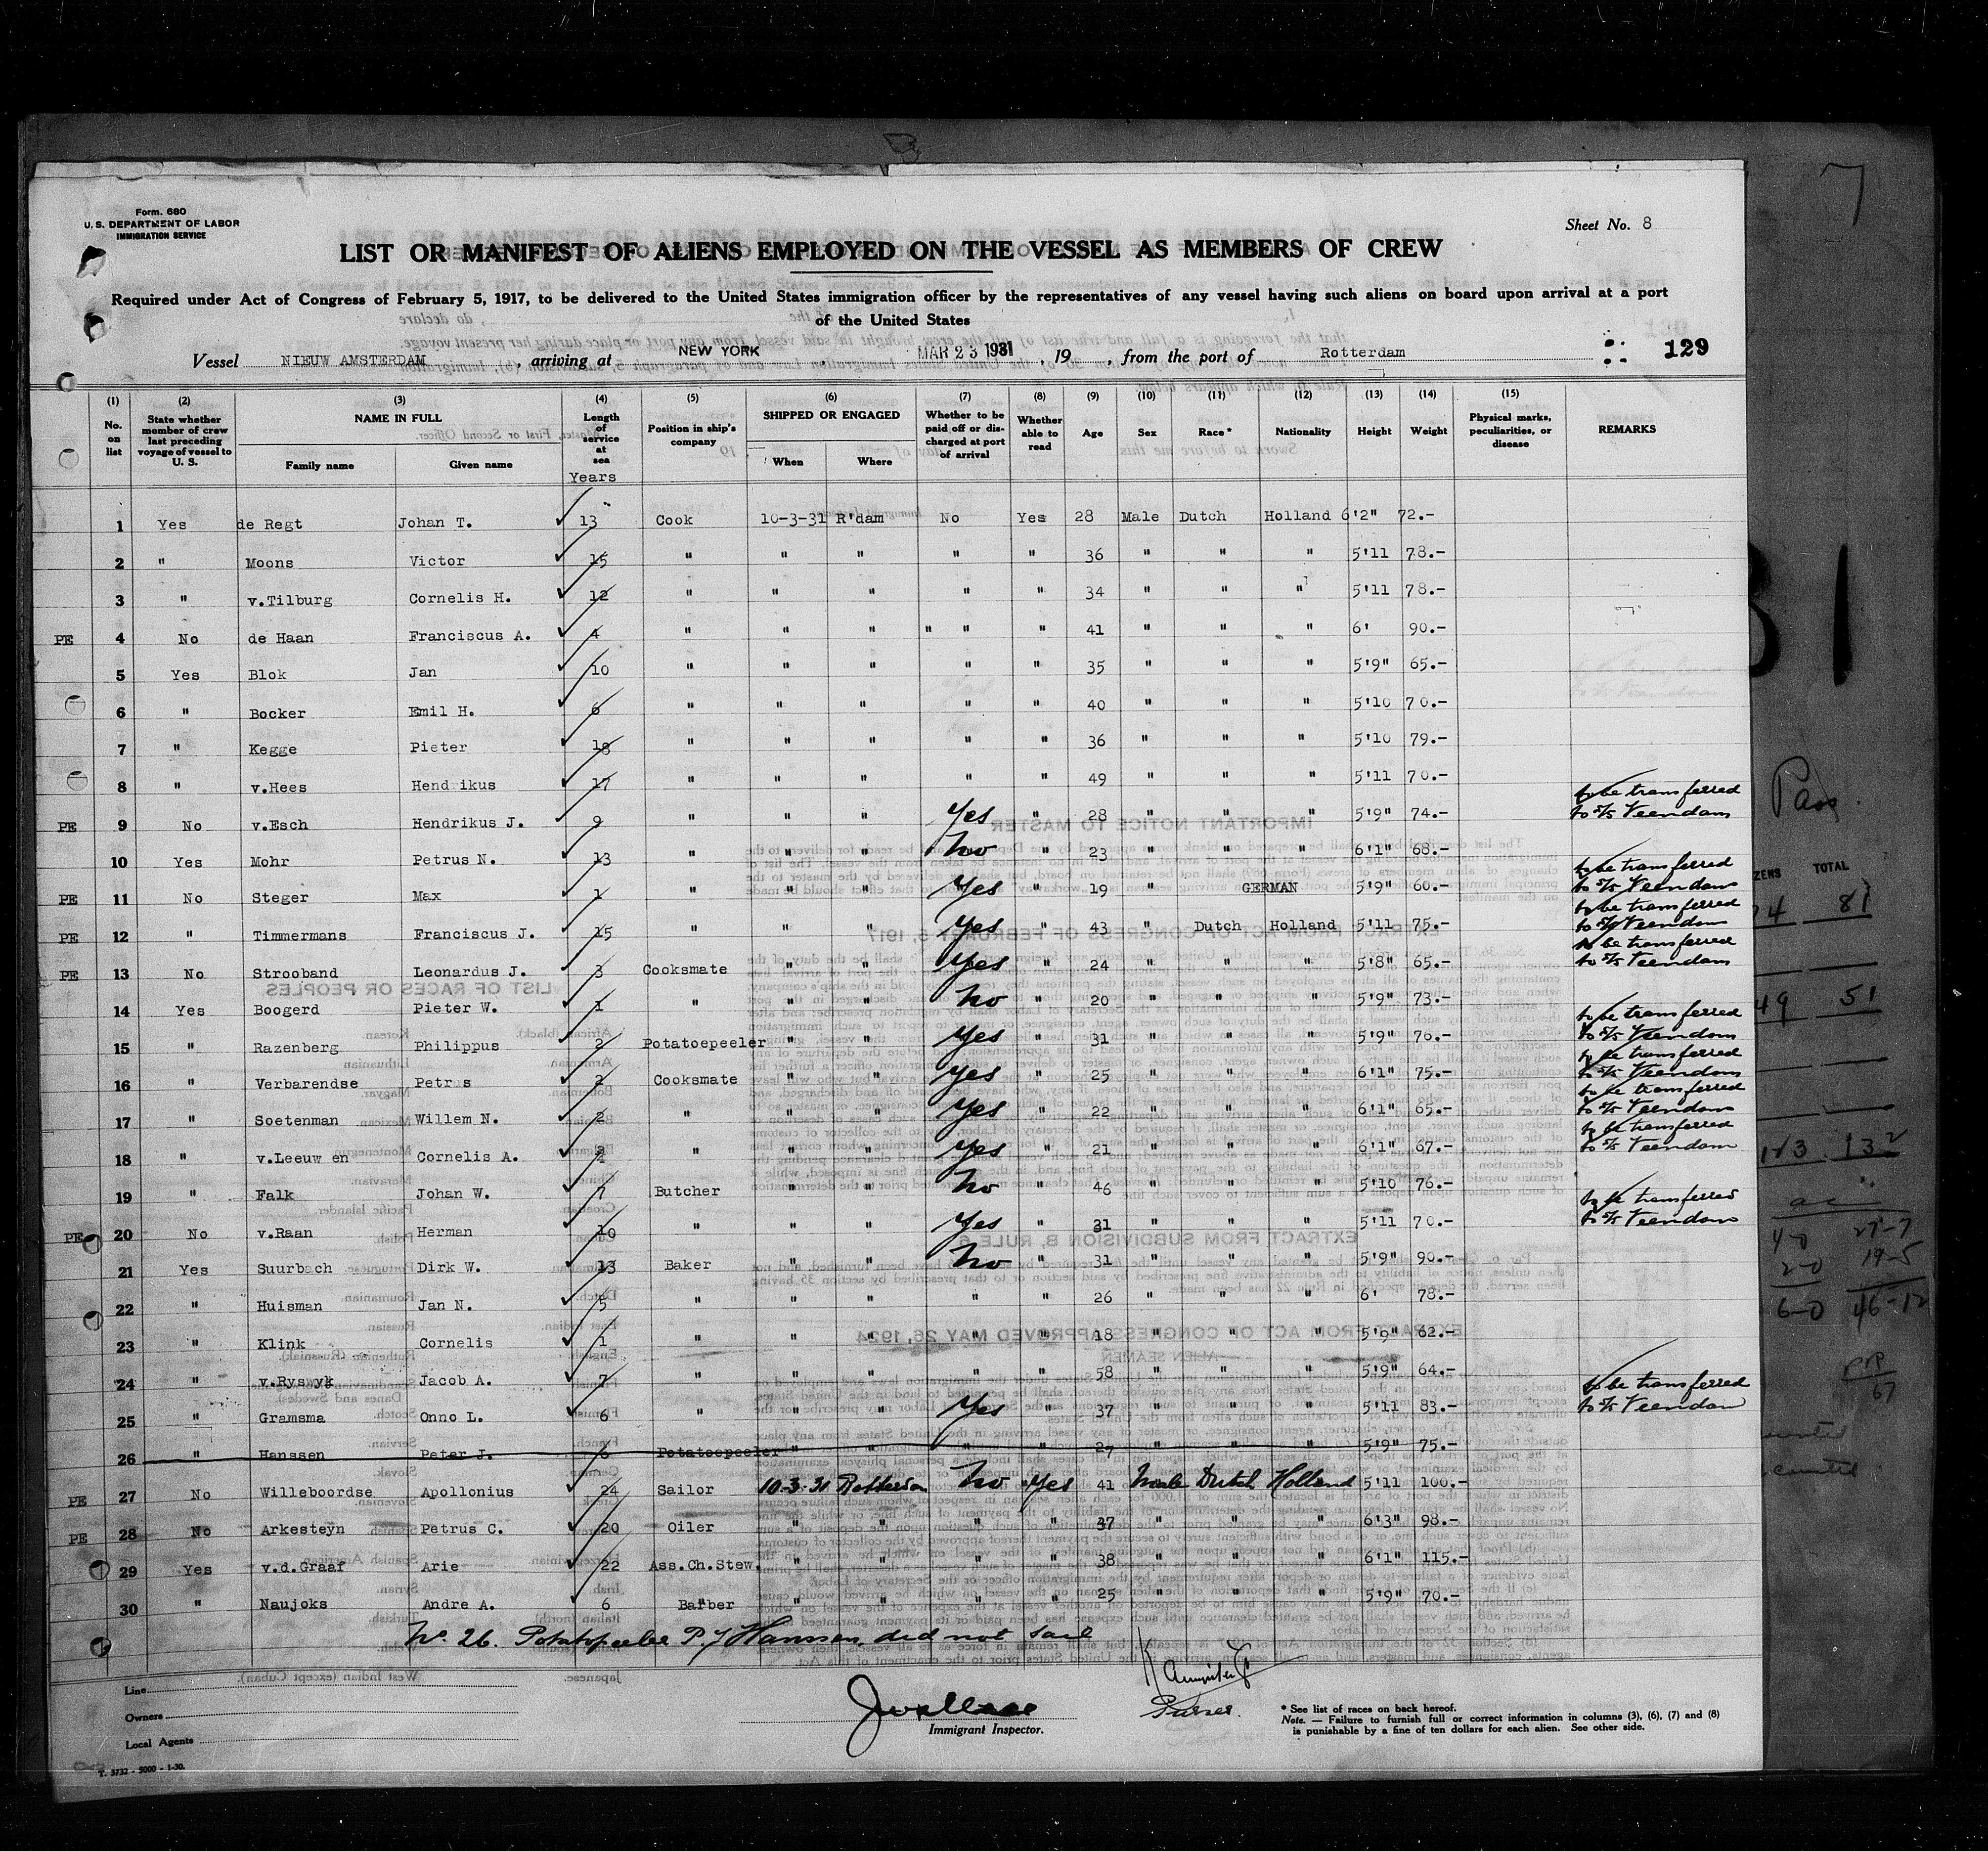 Form. 680
U. S. DEPARTMENT OF LABOR
IMMIGRATION SERVICE
Sheet No. 8
LIST OR MANIFEST OF ALIENS EMPLOYED ON THE VESSEL AS MEMBERS OF CREW
Required under Act of Congress of February 5, 1917, to be delivered to the United States immigration officer by the representatives of any vessel having such aliens on board upon arrival at a port
of the United States
Vessel NIEUW AMSTERDAM, arriving at NEW YORK, MAR 23 1931, 19 , from the port of Rotterdam 129
(1) No. on list
(2) State whether member of crew last preceding voyage of vessel to U. S.
(3) NAME IN FULL Family name Given name
(4) Length of service at sea Years
(5) Position in ship's company
(6) SHIPPED OR ENGAGED When Where
(7) Whether to be paid off or discharged at port of arrival
(8) Whether able to read
(9) Age
(10) Sex
(11) Race*
(12) Nationality
(13) Height
(14) Weight
(15) Physical marks, peculiarities, or disease
REMARKS
1 Yes de Regt Johan T. 13 Cook 10-3-31 R'dam No Yes 28 Male Dutch Holland 6'2" 72.-
2 " Moons Victor 15 " " " " " 36 " " " 5'11 78.-
3 " v.Tilburg Cornelis H. 12 " " " " " 34 " " " 5'11 78.-
PE 4 No de Haan Franciscus A. 4 " " " " " " 41 " " " 6' 90.-
5 Yes Blok Jan 10 " " " " " 35 " " " 5'9" 65.-
6 " Bocker Emil H. 6 " " " " " 40 " " " 5'10 70.-
7 " Kegge Pieter 18 " " " " " 36 " " " 5'10 79.-
8 " v.Hees Hendrikus 17 " " " " " 49 " " " 5'11 70.-
PE 9 No v.Esch Hendrikus J. 9 " " " Yes " 28 " " " 5'9" 74.- to be transferred to s/s Veendam
10 Yes Mohr Petrus N. 13 " " " No " 23 " " " 6'1" 68.-
PE 11 No Steger Max 1 " " " Yes " 19 " GERMAN 5'9" 60.- to be transferred to s/s Veendam
PE 12 " Timmermans Franciscus J. 15 " " Yes " 43 " Dutch Holland 5'11 75.- to be transferred to s/s Veendam
PE 13 No Strooband Leonardus J. 3 Cooksmate " " Yes " 24 " " " 5'8" 65.- to be transferred to s/s Veendam
14 Yes Boogerd Pieter W. 1 " " " No " 20 " " " 5'9" 73.-
15 " Razenberg Philippus 2 Potatoepeeler " " Yes " 31 " " " 5'9" 76.- to be transferred to s/s Veendam
16 " Verbarendse Petrus 2 Cooksmate " " Yes " 25 " " " 6'1" 75.- to be transferred to s/s Veendam
17 " Soetenman Willem N. 2 " " " Yes " 22 " " " 6'1" 65.- to be transferred to s/s Veendam
18 " v.Leeuw en Cornelis A. " " " Yes " 21 " " " 6'1" 67.- to be transferred to s/s Veendam
19 " Falk Johan W. 7 Butcher " " No " 46 " " " 5'10 76.-
PE 20 No v.Raan Herman 10 " " " Yes " 31 " " " 5'11 70.- to be transferred to s/s Veendam
21 Yes Suurbach Dirk W. 13 Baker " " No " 31 " " " 5'9" 90.-
22 " Huisman Jan N. 5 " " " " " 26 " " " 6' 78.-
23 " Klink Cornelis 1 " " " " " 18 " " " 5'9" 62.-
24 " v.Ryswyk Jacob A. 7 " " " " " 58 " " " 5'9" 64.-
25 " Gramsma Onno L. 6 " " " Yes " 37 " " " 5'11 83.- to be transferred to s/s Veendam
26 " Hanssen Peter J. 6 Potatoepeeler " " " " 27 " " " 5'9" 75.-
PE 27 No Willeboordse Apollonius 24 Sailor 10-3-31 Rotterdam No Yes 41 Male Dutch Holland 5'11 100.-
PE 28 No Arkesteyn Petrus C. 20 Oiler " " " " 37 " " " 6'3" 98.-
29 Yes v.d.Graaf Arie 22 Ass.Ch.Stew. " " " " 38 " " " 6'1" 115.-
30 " Naujoks Andre A. 6 Barber " " " " 25 " " " 5'9" 70.-
No. 26. Potatopeeler P. J Hanssen did not sail
Line
Owners
Local Agents
T. 3732 - 5000 - 1-30.
JWallace
Immigrant Inspector.
Purser.
* See list of races on back hereof.
Note. — Failure to furnish full or correct information in columns (3), (6), (7) and (8)
is punishable by a fine of ten dollars for each alien. See other side.
Pass.
TOTAL
81
51
132